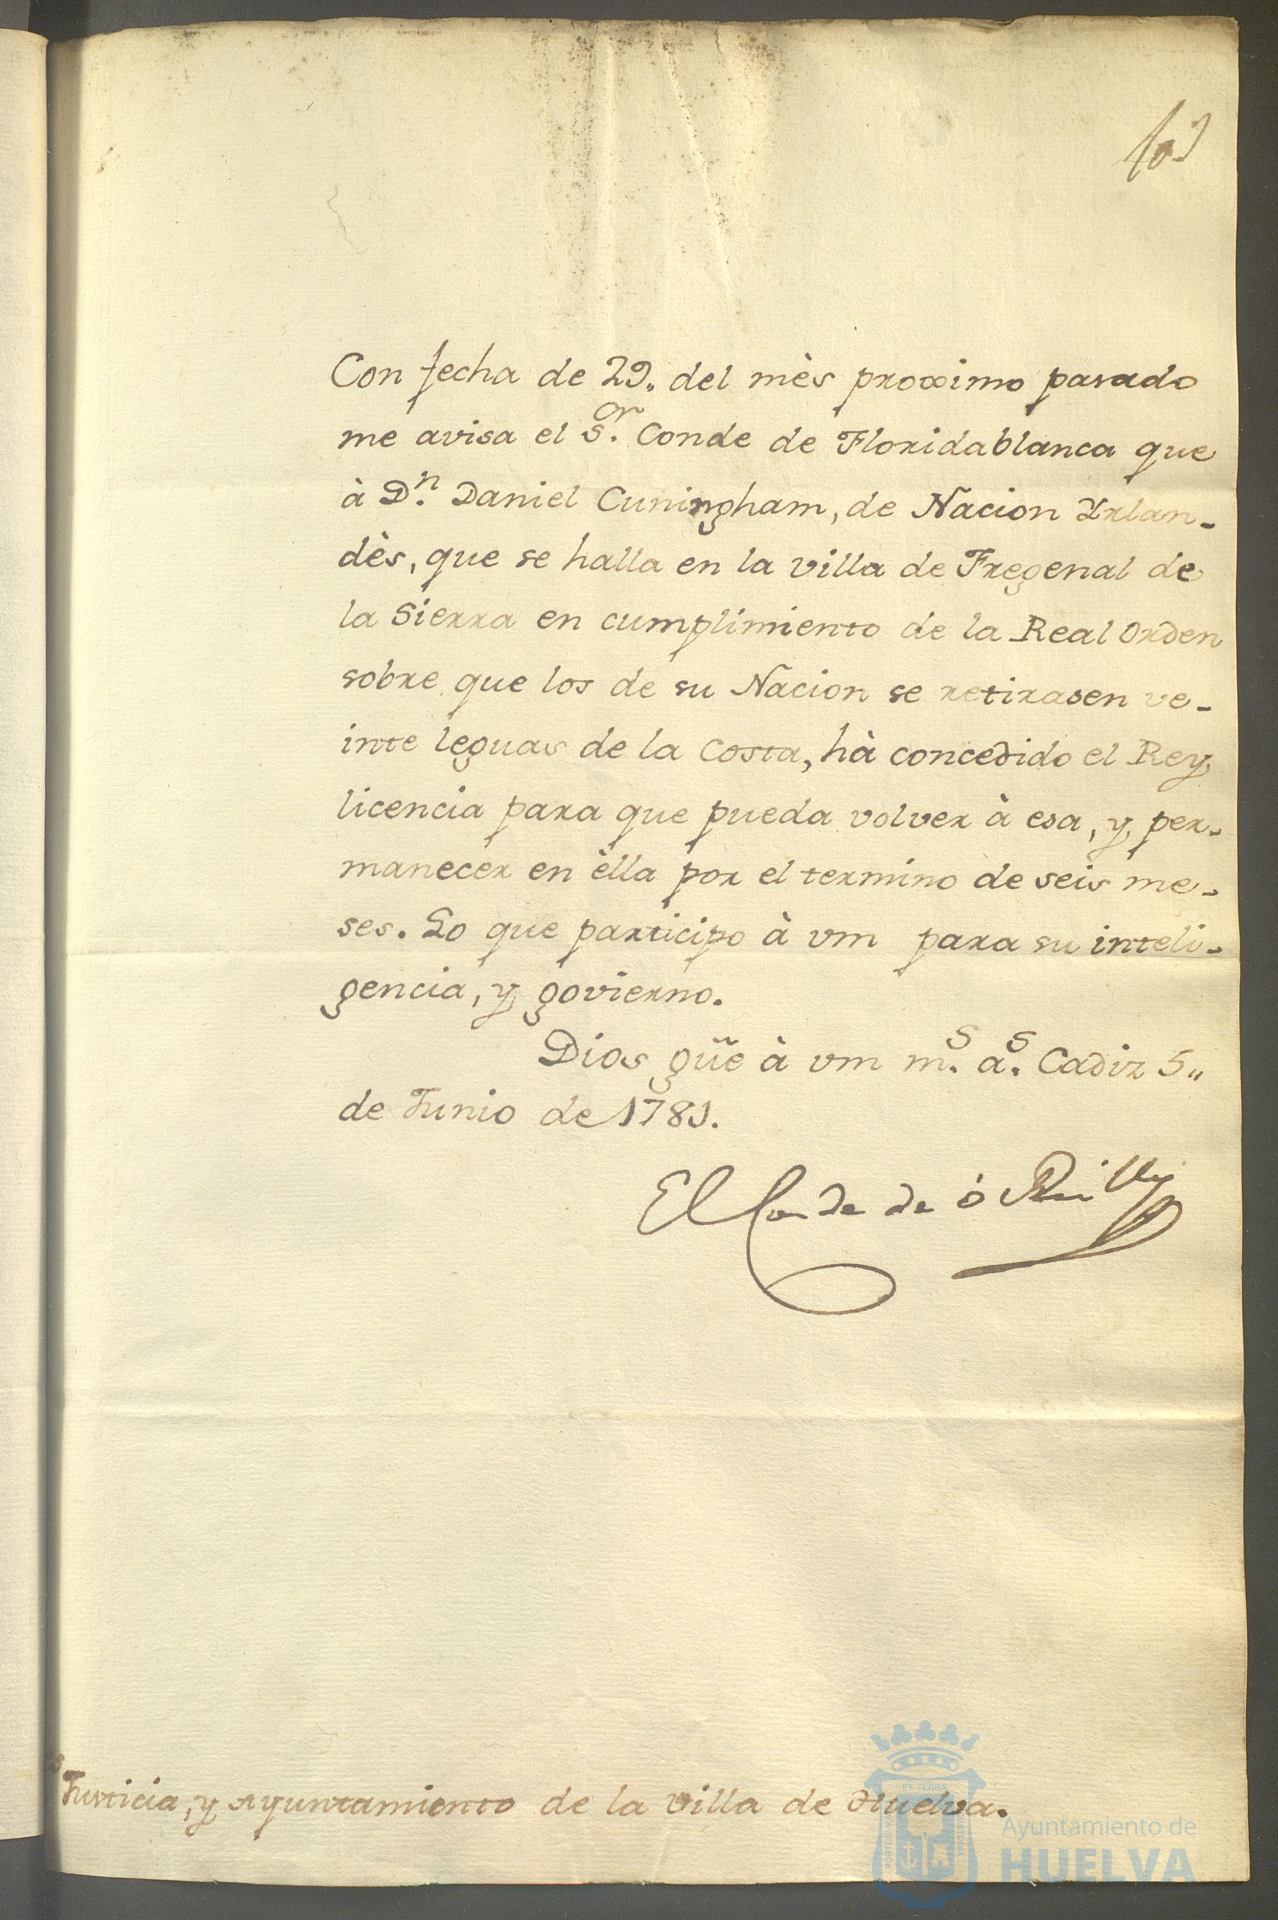 Con fecha de 29. del mès proximo pasado
me avisa el S.or Conde de Floridablanca que
à D.n Daniel Cuningham, de Nacion Yrlan-
dès, que se halla en la villa de Fregenal de
la Sierra en cumplimiento de la Real Orden
sobre que los de su Nacion se retirasen ve-
inte leguas de la Costa, hà concedido el Rey
licencia para que pueda volver à esa, y per-
manecer en èlla por el termino de seis me-
ses. Lo que participo à vm para su inteli-
gencia, y govierno.
Dios güe à vm m.s a.s Cadiz 5,,
de Junio de 1781.
El Conde de ó Reilly
Justicia, y Ayuntamiento de la villa de Huelva.
Ayuntamiento de
HUELVA